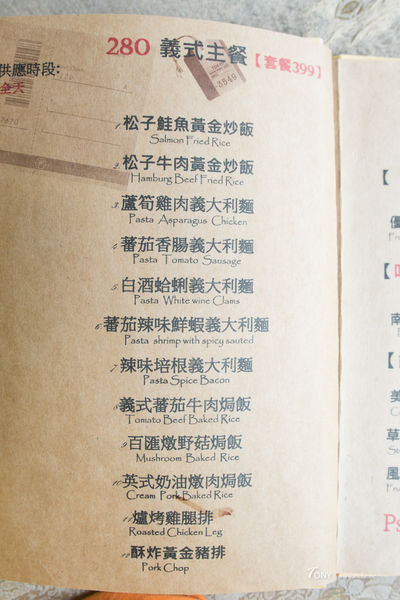 280 義式主餐【套餐399】
供應時段:
全天
1 松子鮭魚黃金炒飯
Salmon Fried Rice
2 松子牛肉黃金炒飯
Hamburg Beef Fried Rice
3 蘆筍雞肉義大利麵
Pasta Asparagus Chicken
4 蕃茄香腸義大利麵
Pasta Tomato Sausage
5 白酒蛤蜊義大利麵
Pasta White wine Clams
6 蕃茄辣味鮮蝦義大利麵
Pasta shrimp with spicy sauted
7 辣味培根義大利麵
Pasta Spice Bacon
8 義式蕃茄牛肉焗飯
Tomato Beef Baked Rice
9 百匯燉野菇焗飯
Mushroom Baked Rice
10 英式奶油燉肉焗飯
Cream Pork Baked Rice
11 爐烤雞腿排
Roasted Chicken Leg
12 酥炸黃金豬排
Pork Chop
【
優
【
南
【
美
草
風
Ps
TONY